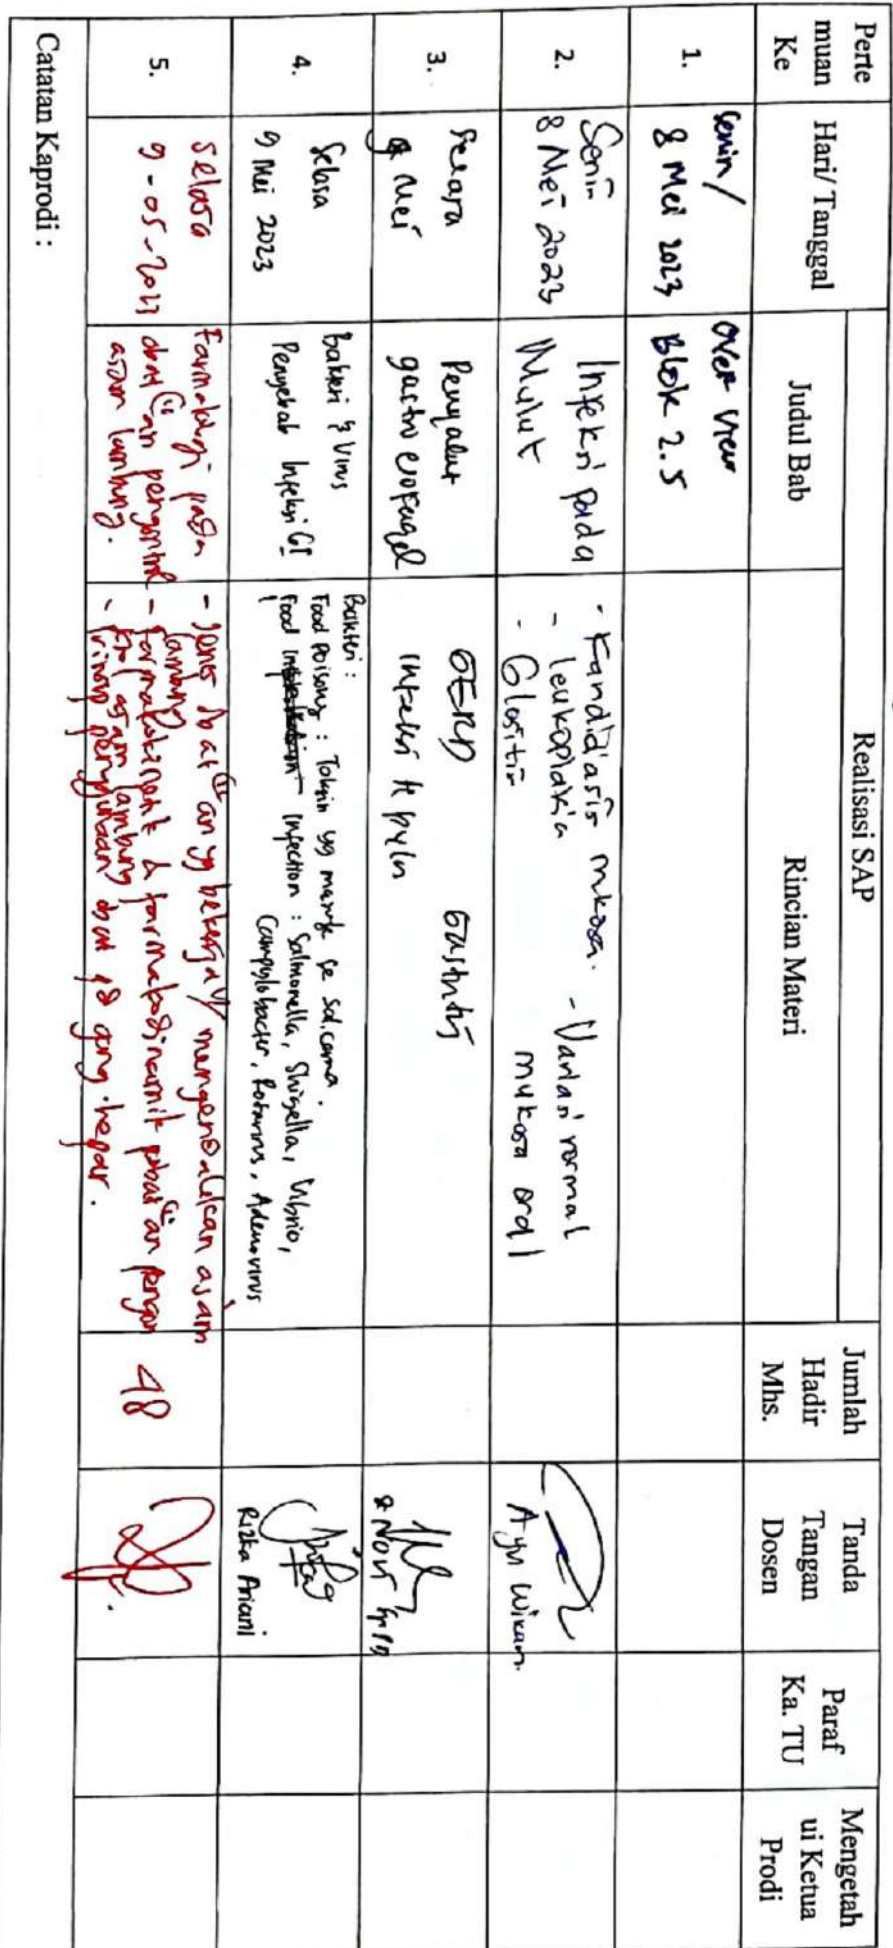 Perte
muan
Ke
Hari/ Tanggal
Realisasi SAP
Judul Bab
Rincian Materi
Jumlah
Hadir
Mhs.
Tanda
Tangan
Dosen
Paraf
Ka. TU
Mengetah
ui Ketua
Prodi
1.
Senin/
8 Mei 2023
Over view
Blok 2.5
2.
Senin
8 Mei 2023
Infeksi pada
Mulut
- Kandidiasis mukosa.
- leukoplakia
- Glositis
- Variasi normal
mukosa oral
Ayu Wikan
3.
Selasa
9 Mei
Penyakit
gastroesofageal
GERD
Gastritis
infeksi H pylori
4.
Selasa
9 Mei 2023
bakteri & Virus
Penyebab Infeksi GI
Bakteri :
Food Poisong : Toksin yg masuk ke sal.cerna.
Food infection : Salmonella, Shigella, Vibrio,
Campylobacter, Rotavirus, Adenovirus
Rizka Ariani
5.
Selasa
9-05-2023
Farmakologi pada
obat(2)an pengontrol
asam lambung.
- Jenis obat(2)an yg bekerja u/ mengendalikan asam
lambung
- farmakokinetik & farmakodinamik obat(2)an pengon
trol asam lambung
- Prinsip penggunaan obat pd ggng.hepar.
48
Catatan Kaprodi :